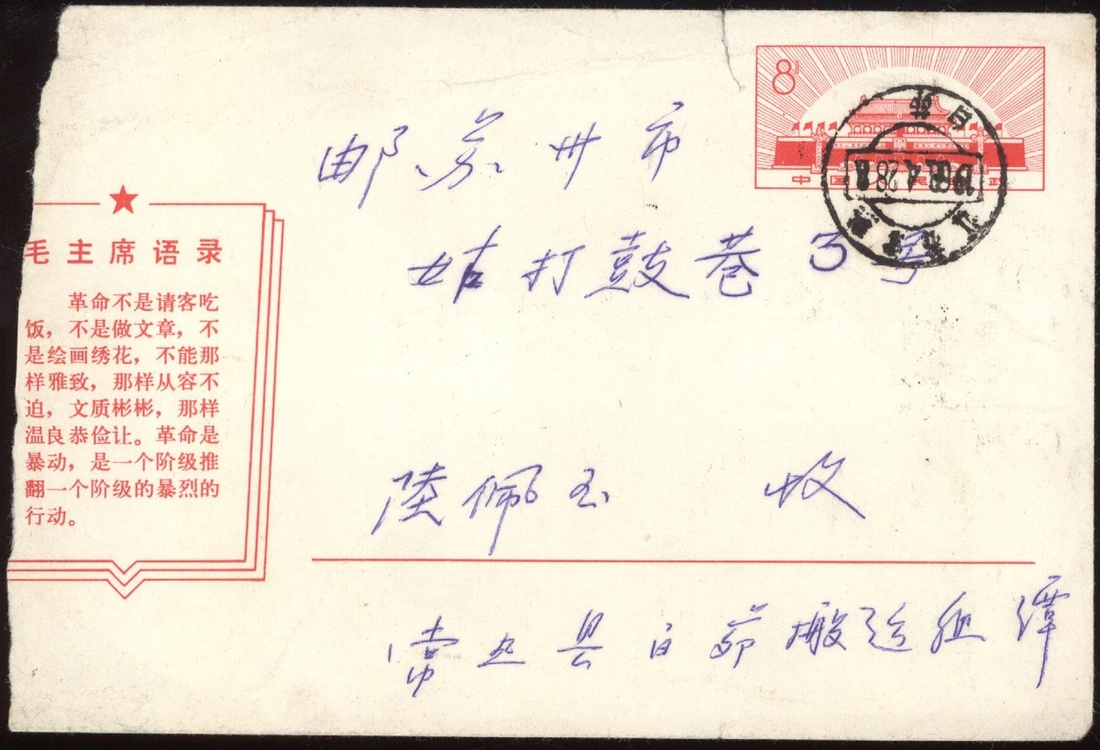 8分
中国人民邮政
邮 苏州市
姑打鼓巷3号
毛主席语录
革命不是请客吃
饭，不是做文章，不
是绘画绣花，不能那
样雅致，那样从容不
迫，文质彬彬，那样
温良恭俭让。革命是
暴动，是一个阶级推
翻一个阶级的暴烈的
行动。
陸佩玉 收
常熟县白茆搬运组譚